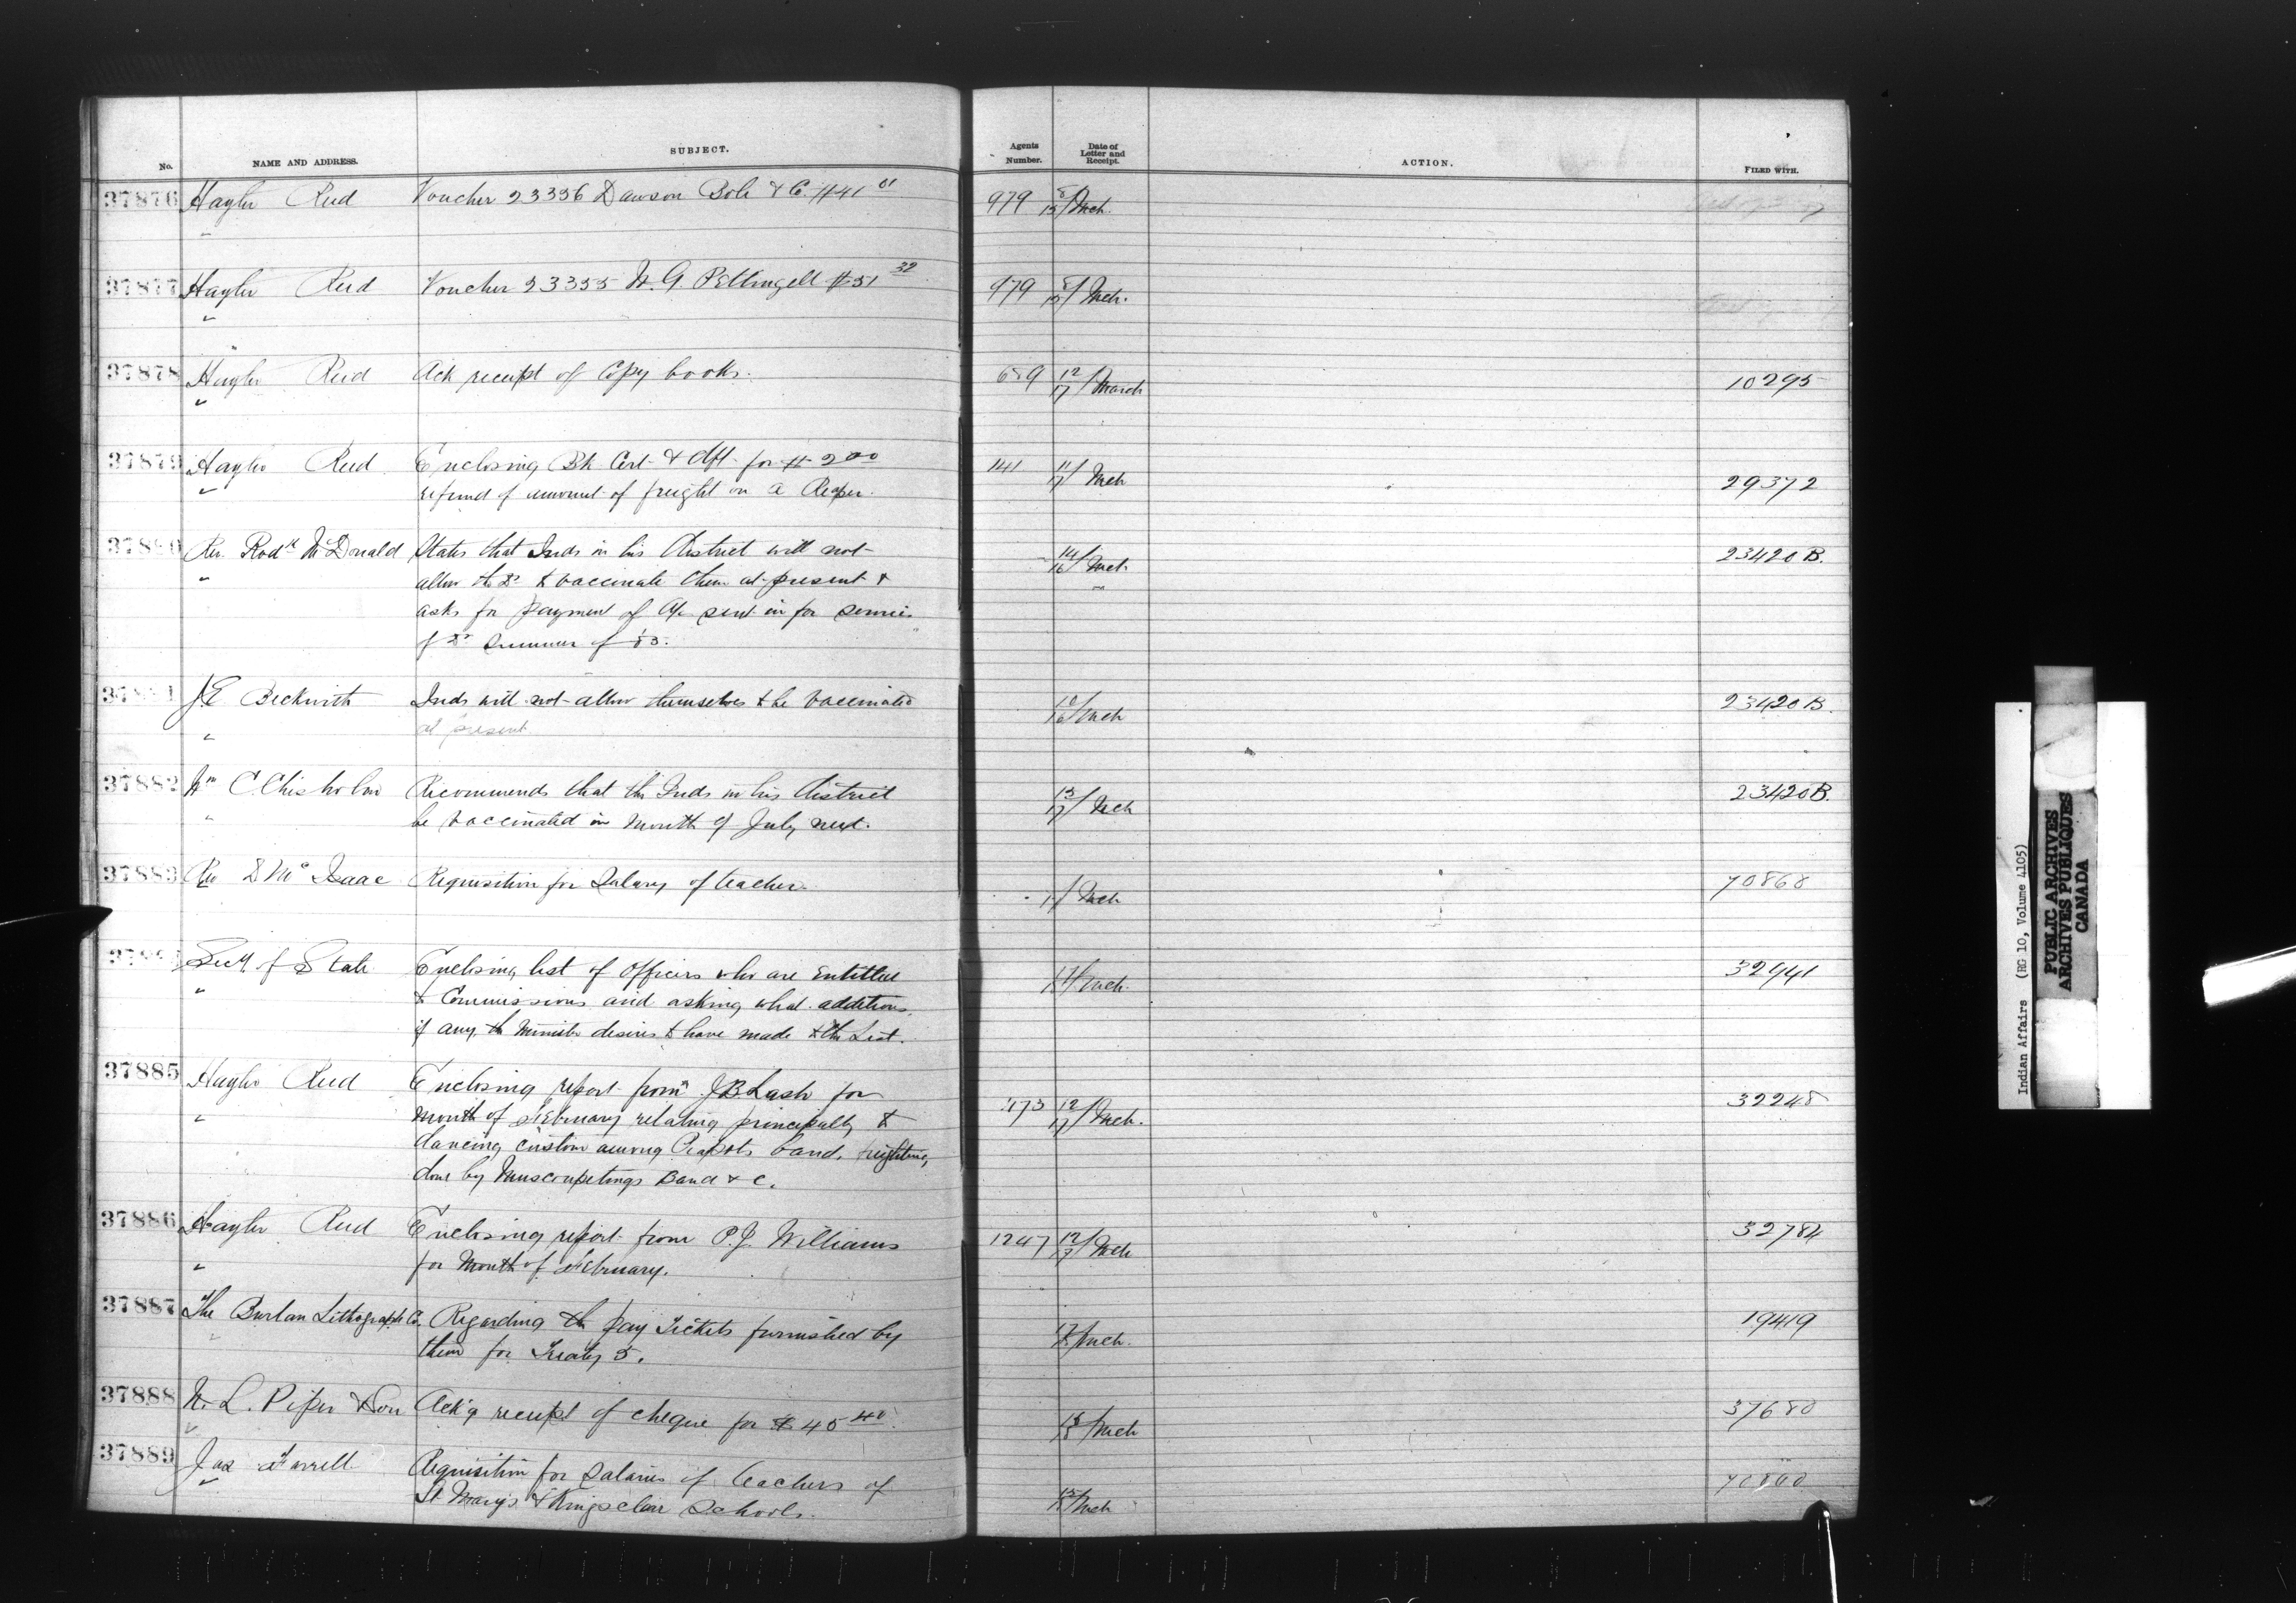 No. NAME AND ADDRESS. SUBJECT. Agents Number. Date of Letter and Receipt. ACTION. FILED WITH.
37876 Hayter Reed Voucher 23356 Dawson Bole & Co. $41 01 979 8/15/Mch.
37877 Hayter Reed Voucher 23355 W. G. Pettingell $51 32 979 8/15/Mch.
37878 Hayter Reed Ack receipt of Copy books. 689 12/17/March 10295
37879 Hayter Reed Enclosing Bk Cert & dft for $ 2 00 141 11/17/Mch 29372
refund of amount of freight on a Reaper.
37880 Rev. Rodk McDonald States that Inds in his District will not 14/16/Mch 23420 B.
allow the Dr to vaccinate them at present &
asks for payment of a/c sent in for services
of Dr Summer of 85.
37881 J.E. Beckwith Inds will not allow themselves to be vaccinated 10/16/Mch 23420 B.
at present
37882 Wm C. Chisholm Recommends that the Inds in his District 15/17/Mch 23420 B.
be vaccinated in month of July next.
37883 Rev D Mc Isaac Requisition for Salary of teacher. Mch 70868
Secy of State Enclosing list of Officers who are Entitled Mch. 32941
to Commissions and asking what additions,
if any, the Minister desires to have made to the List.
37885 Hayter Reed Enclosing report from J B Lash for 473 12/17/Mch. 32248
month of February relating principally to
dancing custom among Piapots band, freighting,
done by Muscowpetungs Band & c.
37886 Hayter Reed Enclosing report from P. J. Williams 1247 12/17/Mch 32784
for Month of February.
37887 The Burlan Lithograph Co. Regarding the pay Tickets furnished by Mch. 19419
them for Treaty 5.
37888 W. L. Piper & Son Ack'g receipt of cheque for $ 45 40. Mch 37680
37889 Jas Farrell Requisition for Salaries of teachers of Mch
St Mary's & Kingsclear Schools.
Indian Affairs (RG 10, Volume 4105)
PUBLIC ARCHIVES
ARCHIVES PUBLIQUES
CANADA